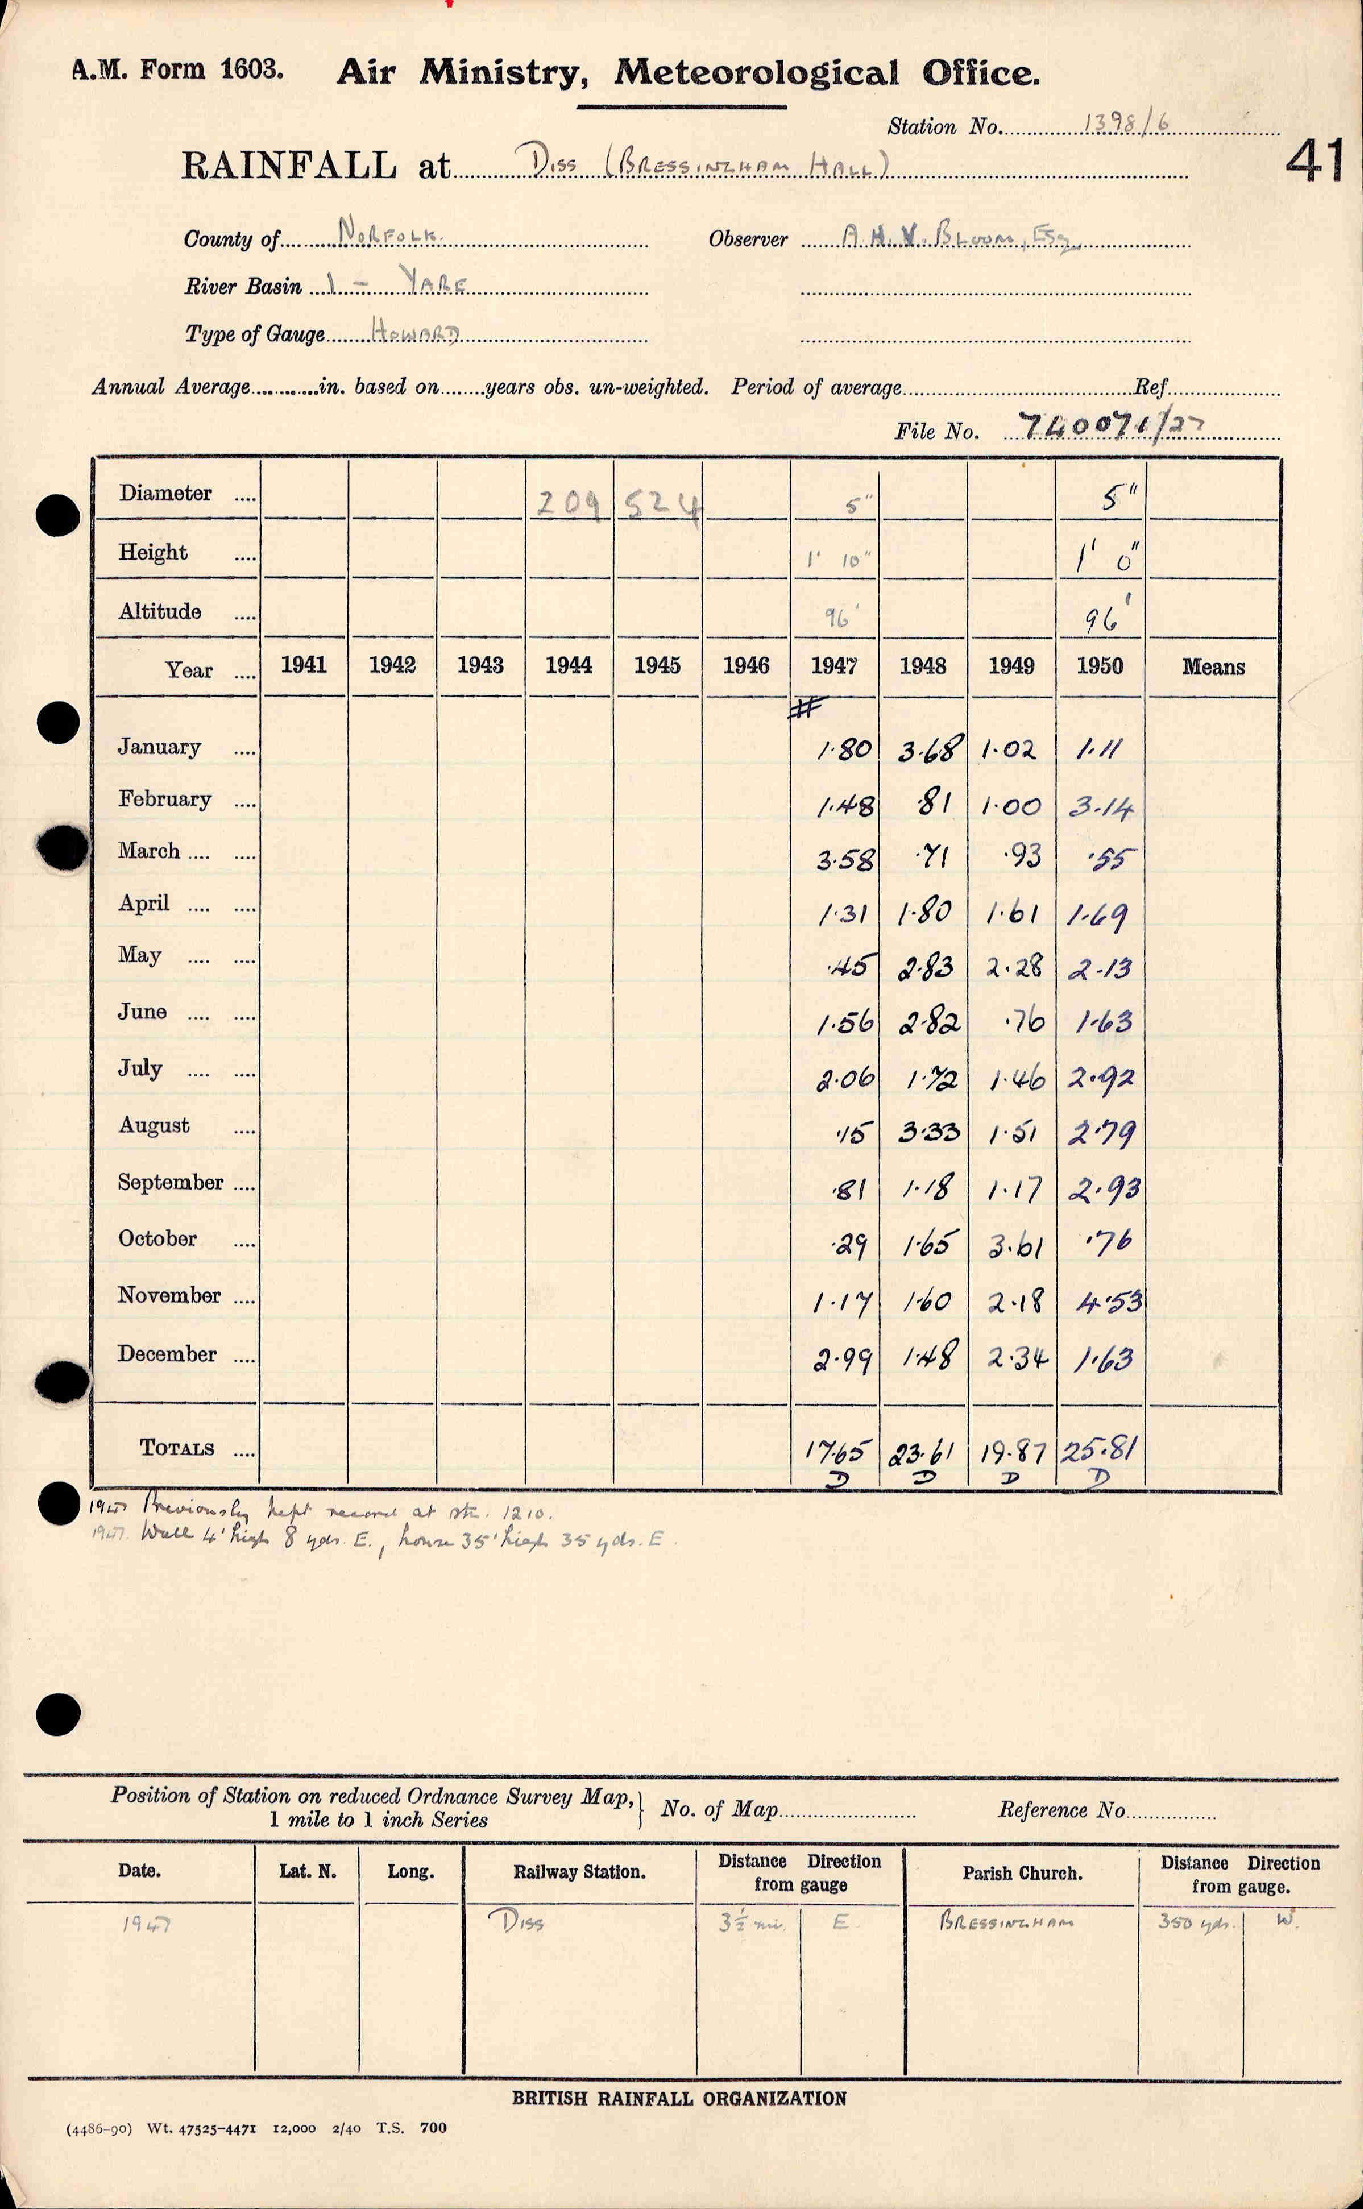 A.M. Form 1603. Air Ministry, Meteorological Office.
Station No. 1398/6
41
RAINFALL at Diss (Bressingham Hall)
County of Norfolk. Observer A.H.V. Bloom, Esq
River Basin 1 - Yare
Type of Gauge Howard
Annual Average............in. based on........years obs. un-weighted. Period of average........Ref........
File No. 740071/27
Diameter .... 209 524 5" 5"
Height .... 1' 10" 1' 0"
Altitude .... 96' 96'
Year .... 1941 1942 1943 1944 1945 1946 1947 1948 1949 1950 Means
#
January .... 1.80 3.68 1.02 1.11
February .... 1.48 .81 1.00 3.14
March .... .... 3.58 .71 .93 .55
April .... .... 1.31 1.80 1.61 1.69
May .... .... .45 2.83 2.28 2.13
June .... .... 1.56 2.82 .76 1.63
July .... .... 2.06 1.72 1.46 2.92
August .... .15 3.33 1.51 2.79
September .... .81 1.18 1.17 2.93
October .... .29 1.65 3.61 .76
November .... 1.17 1.60 2.18 4.53
December .... 2.99 1.48 2.34 1.63
Totals .... 17.65 23.61 19.87 25.81
D D D D
1947 Previously kept record at stn. 1210.
1947. Wall 4' high 8 yds. E., house 35' high 35 yds. E.
Position of Station on reduced Ordnance Survey Map, } No. of Map........ Reference No........
1 mile to 1 inch Series
Date. Lat. N. Long. Railway Station. Distance Direction from gauge Parish Church. Distance Direction from gauge.
1947 Diss 3½ mi. E. Bressingham 350 yds. W.
BRITISH RAINFALL ORGANIZATION
(4486-90) Wt. 47525-4471 12,000 2/40 T.S. 700